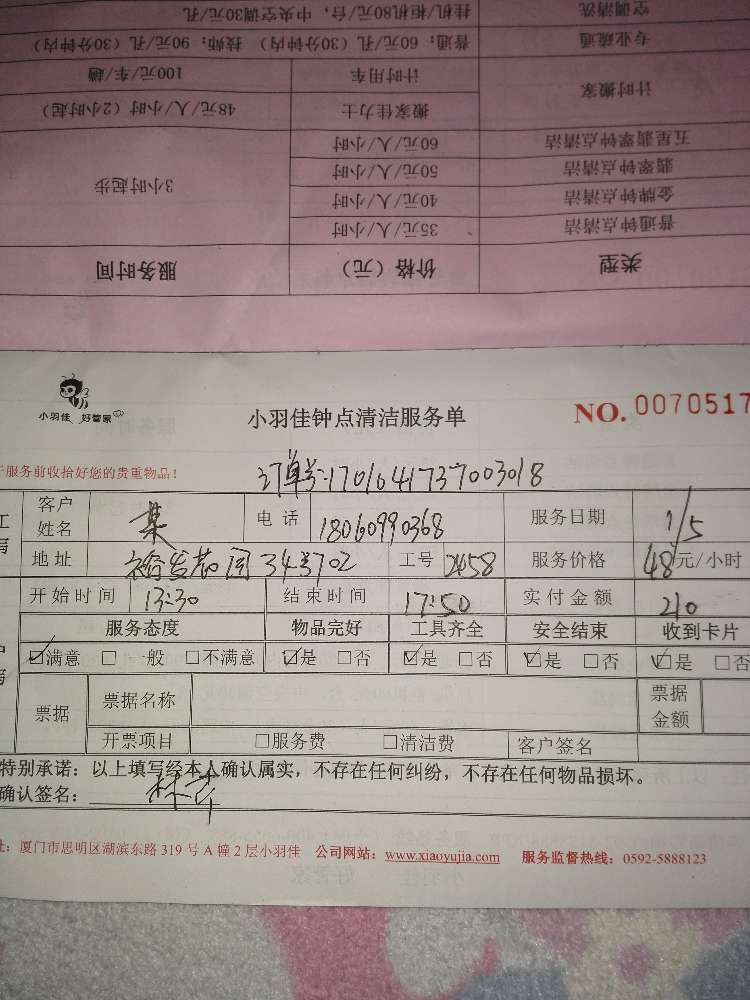 空调清洗 挂机/柜机80元/台，中央空调30元/孔
专业疏通 普通：60元/孔（30分钟内） 技师：90元/孔（30分钟内）
计时搬家 计时用车 100元/车/趟
搬家佳力士 48元/人/小时（2小时起）
五星翡翠钟点清洁 60元/人/小时
翡翠钟点清洁 50元/人/小时 3小时起步
金牌钟点清洁 40元/人/小时
普通钟点清洁 35元/人/小时
类型 价格（元） 服务时间
小羽佳 好管家
小羽佳钟点清洁服务单
NO. 0070517
服务前收拾好您的贵重物品！
订单号:1701641737003018
客户姓名 电话 18060990368 服务日期 1/5
地址 裕发花园34号702 工号 2458 服务价格 48元/小时
开始时间 13:30 结束时间 17:50 实付金额 210
服务态度 物品完好 工具齐全 安全结束 收到卡片
☑满意 □一般 □不满意 ☑是 □否 ☑是 □否 ☑是 □否 ☑是 □否
票据 票据名称 票据金额
开票项目 □服务费 □清洁费 客户签名
特别承诺：以上填写经本人确认属实，不存在任何纠纷，不存在任何物品损坏。
确认签名：
址：厦门市思明区湖滨东路 319 号 A 幢 2 层小羽佳 公司网站：www.xiaoyujia.com 服务监督热线：0592-5888123